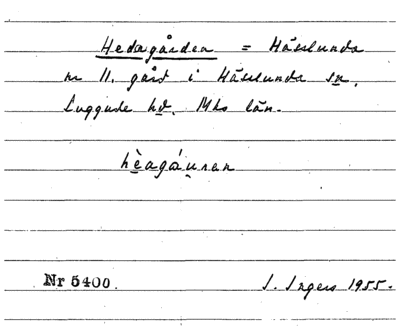 Hedagården = Hässlunda
nr 11. gård i Hässlunda sn,
Luggude hd. Mhs län.
hèagáu̯ran
Nr 5400.
I. Ingers 1955.